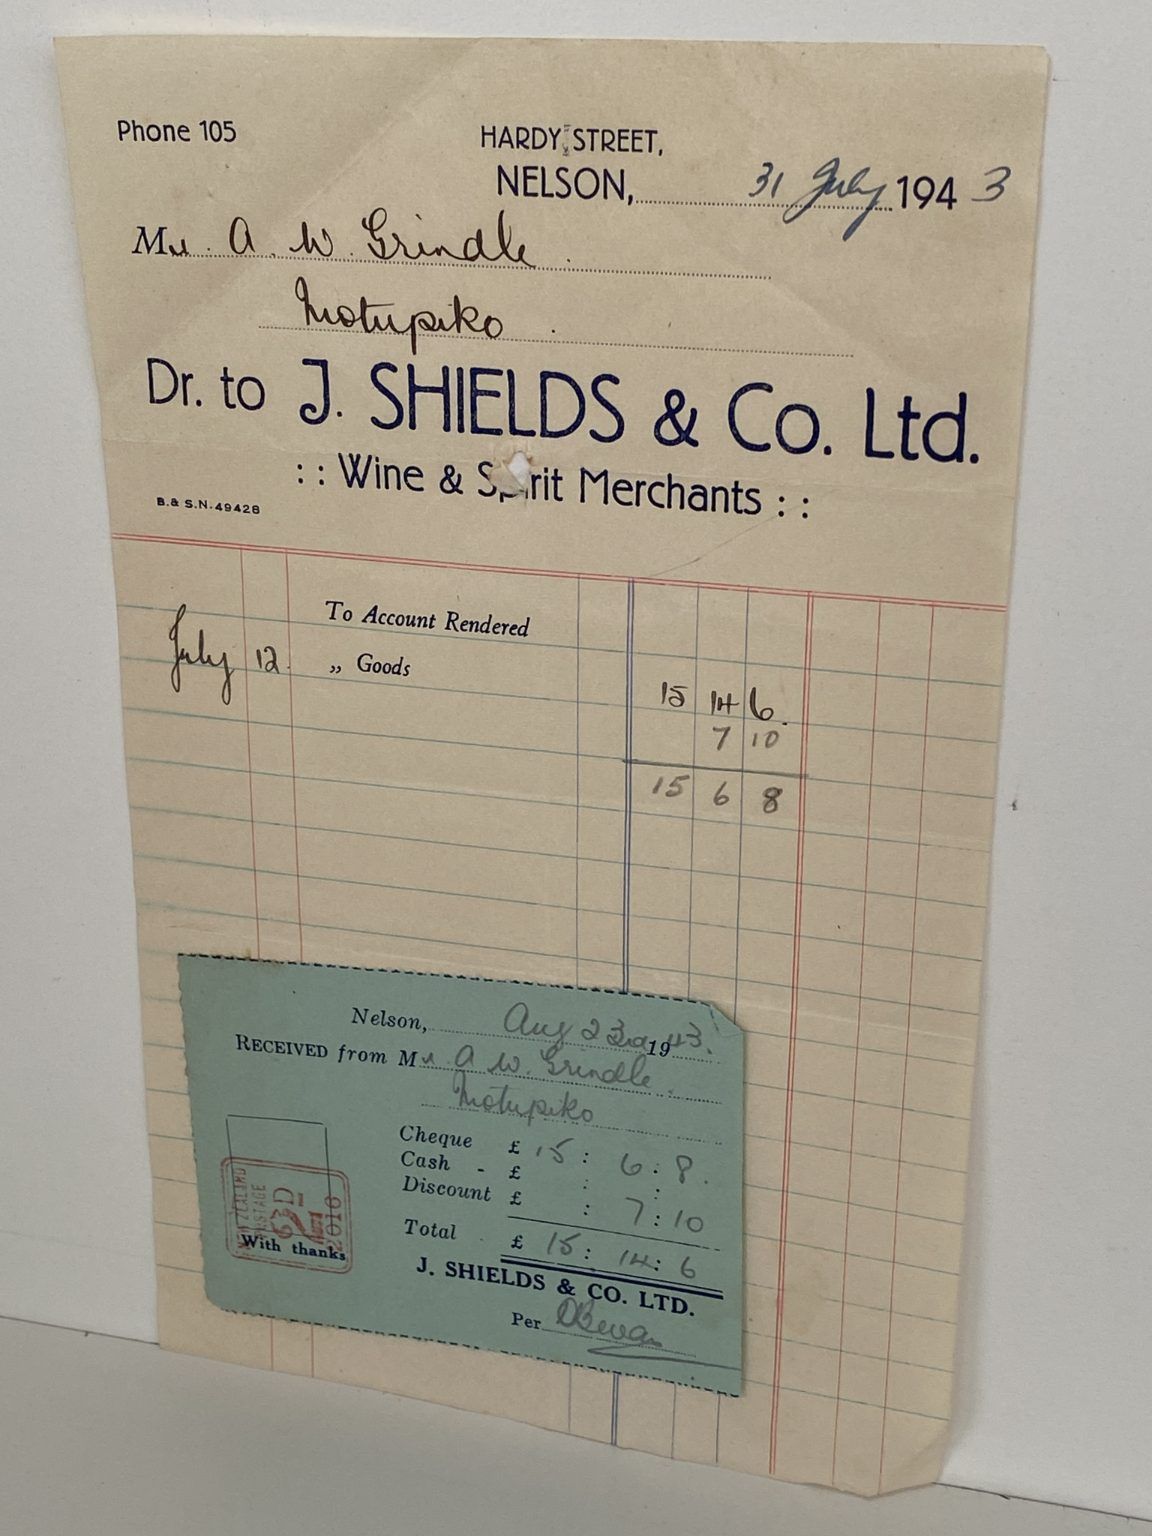 Phone 105
HARDY STREET,
NELSON, 31 July 1943
Mr. A. W. Grindle
Motupiko
Dr. to J. SHIELDS & Co. Ltd.
: : Wine & Spirit Merchants : :
B. & S. N. 49428
To Account Rendered
July 12 „ Goods
15 14 6
7 10
15 6 8
Nelson, Aug 23rd 1943.
RECEIVED from Mr A. W. Grindle
Motupiko
Cheque £ 15 : 6 : 8.
Cash - £ : :
Discount £ : 7 : 10
Total £ 15 : 14 : 6
J. SHIELDS & CO. LTD.
Per
With thanks
NEW ZEALAND
POSTAGE